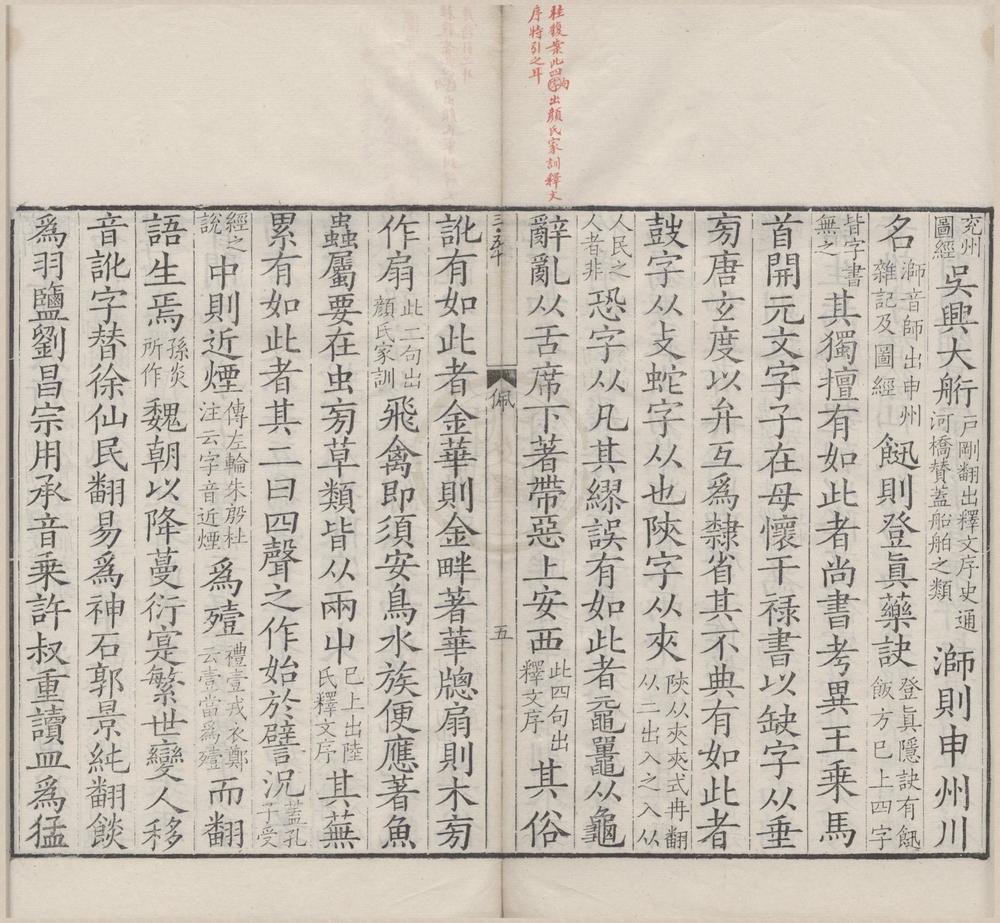 桂馥案此四句出顔氏家訓釋文
序特引之耳
兖州圖經吳興大䑪戸剛翻出釋文序史通河橋賛蓋船舶之類溮則申州川
名溮音師出申州雜記及圖經䬳則登眞藥訣登眞隱訣有䬳飯方已上四字
皆字書無之其獨擅有如此者尚書考異王乗馬
首開元文字子在母懷干禄書以缺字从垂
㫄唐玄度以弁互爲隸省其不典有如此者
鼓字从攴蛇字从也陝字从夾陝从夾夾式冉翻从二出入之入从
人民之人者非恐字从凡其繆誤有如此者黿鼉从龜
辭亂从舌席下著帶惡上安西此四句出釋文序其俗
三·五千
佩
五
訛有如此者金華則金畔著華牕扇則木㫄
作扇此二句出顔氏家訓飛禽即須安鳥水族便應著魚
蟲屬要在虫㫄草類皆从兩屮已上出陸氏釋文序其蕪
累有如此者其二曰四聲之作始於譬況蓋孔子受
經之說中則近煙傳左輪朱殷杜注云字音近煙爲殪禮壹戎衣鄭云壹當爲殪而翻
語生焉孫炎所作魏朝以降蔓衍寔繁世變人移
音訛字替徐仙民翻易爲神石郭景純翻餤
爲羽鹽劉昌宗用承音乗許叔重讀皿爲猛